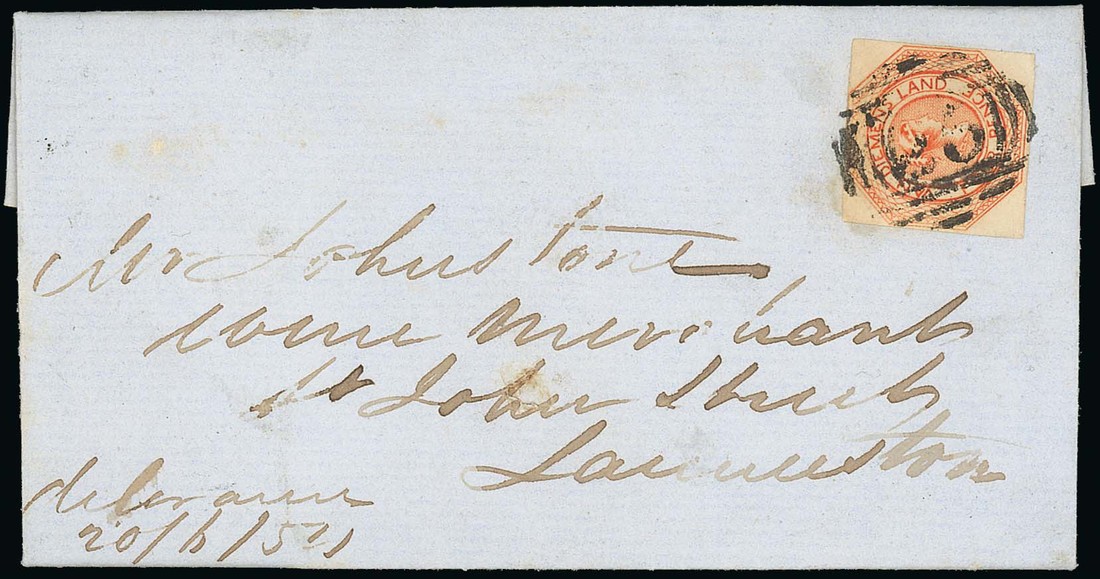 VAN DIEMENS LAND FOUR PENCE
Mr Johnstone
Wine Merchant
St John Street
Launceston
Deloraine
20/6/54